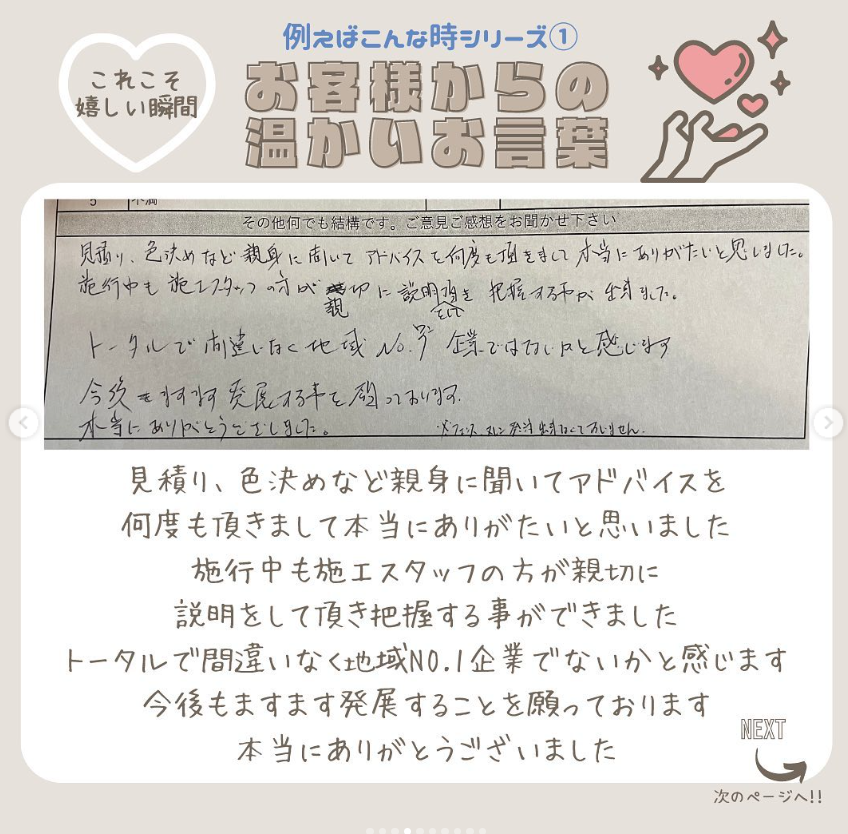 例えばこんな時シリーズ①
これこそ
嬉しい瞬間
お客様からの
温かいお言葉
5 不満
その他何でも結構です。ご意見ご感想をお聞かせ下さい
見積り、色決めなど親身に聞いてアドバイスを何度も頂きまして本当にありがたいと思いました。
施行中も施工スタッフの方が親切に説明をして頂き把握する事が出来ました。
トータルで間違いなく地域No.1企業ではないかと感じます
今後もますます発展する事を願っております。
本当にありがとうございました。
見積り、色決めなど親身に聞いてアドバイスを
何度も頂きまして本当にありがたいと思いました
施行中も施工スタッフの方が親切に
説明をして頂き把握する事ができました
トータルで間違いなく地域NO.1企業でないかと感じます
今後もますます発展することを願っております
本当にありがとうございました
NEXT
次のページへ!!